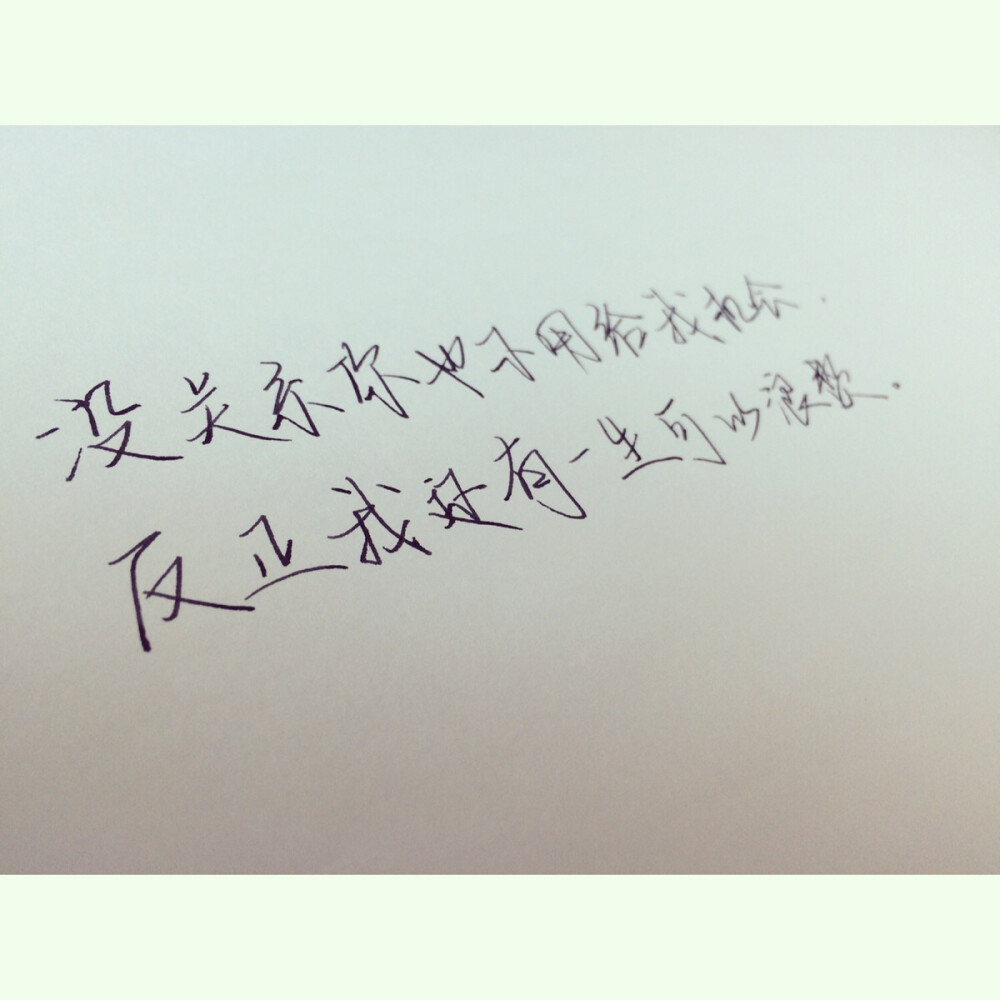 没关系你也不用给我机会.
反正我还有一生可以浪费.